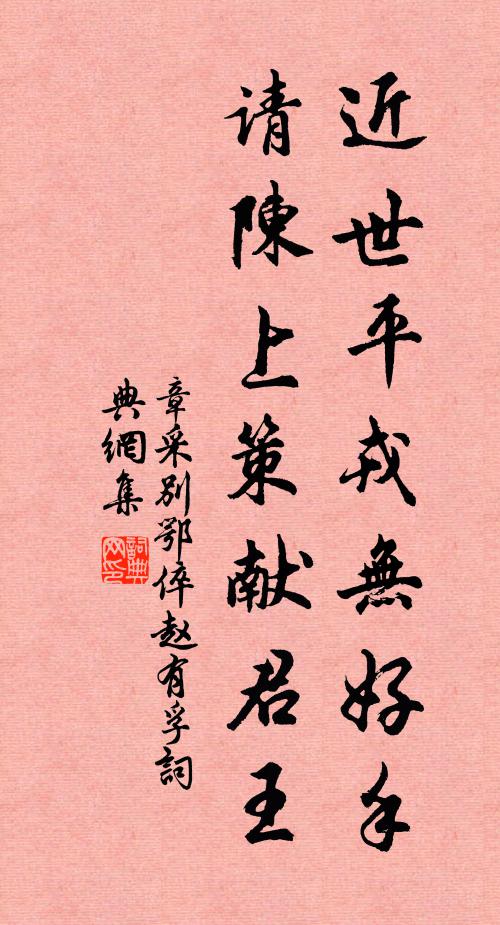 近世平戎無好手
请陳上策献君王
章采别鄂倅赵有孚詞
典網集
詞典網印